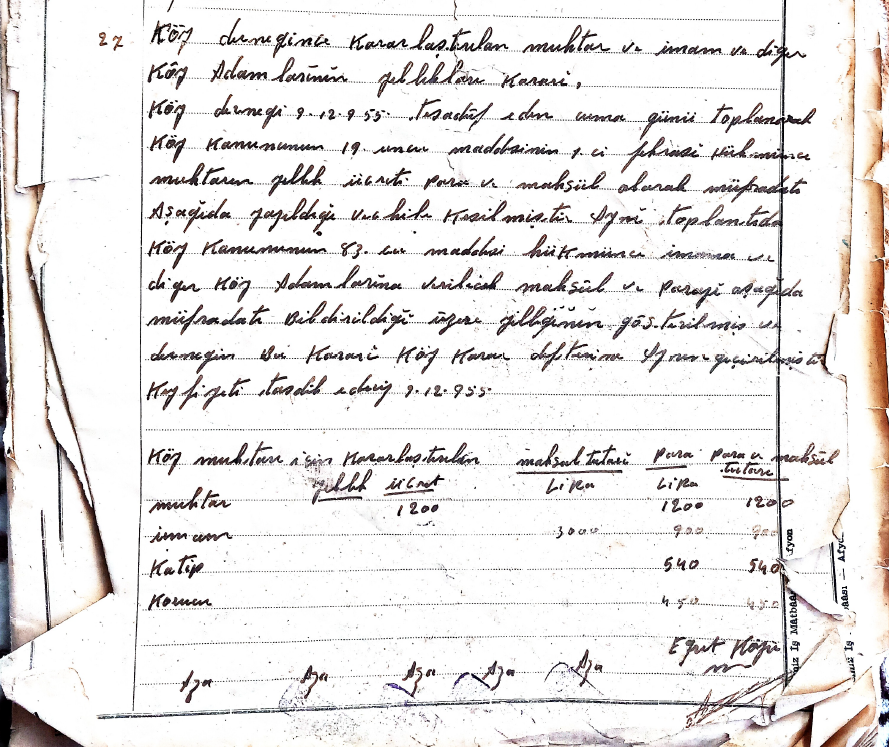 27 Köy dernegince Kararlastırılan muhtar ve imam ve diger
Köy Adamlarının yıllıkları Kararı,
Köy dernegi 9.12.955 tesadüf eden cuma günü toplanarak
Köy Kanununun 19. uncu maddesinin 7 ci fıkrası hükmünce
muhtarın yıllık ücreti para ve mahsül olarak müfradatı
Aşağıda yazıldığı vechile Kesilmiştir Aynı toplantıda
Köy Kanununun 83. cü maddesi hükmünce imama ve
diger Köy Adamlarına verilecek mahsül ve parayı aşağıda
müfradatı Bildirildiği üzere yıllığının gösterilmiş ve
dernegin Bu Kararı Köy Karar defterine Aynen geçirilmişti
Keyfiyeti tasdik ederiz 9.12.955
Köy muhtarı için Kararlaştırılan mahsul tutarı para para ve mahsül
yıllık ücret LiRa LiRa tutarı
muhtar 1200 1200 1200
imam 3000 900 900
Katip 540 540
Korucu 450 450
Eğret Köyü
Aza Aza Aza Aza Aza